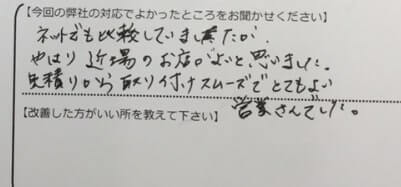 【今回の弊社の対応でよかったところをお聞かせください】
ネットでも比較していましたが、
やはり近場のお店がよいと思いました。
見積りから取り付けスムーズでとてもよい
営業さんでした。
【改善した方がいい所を教えて下さい】